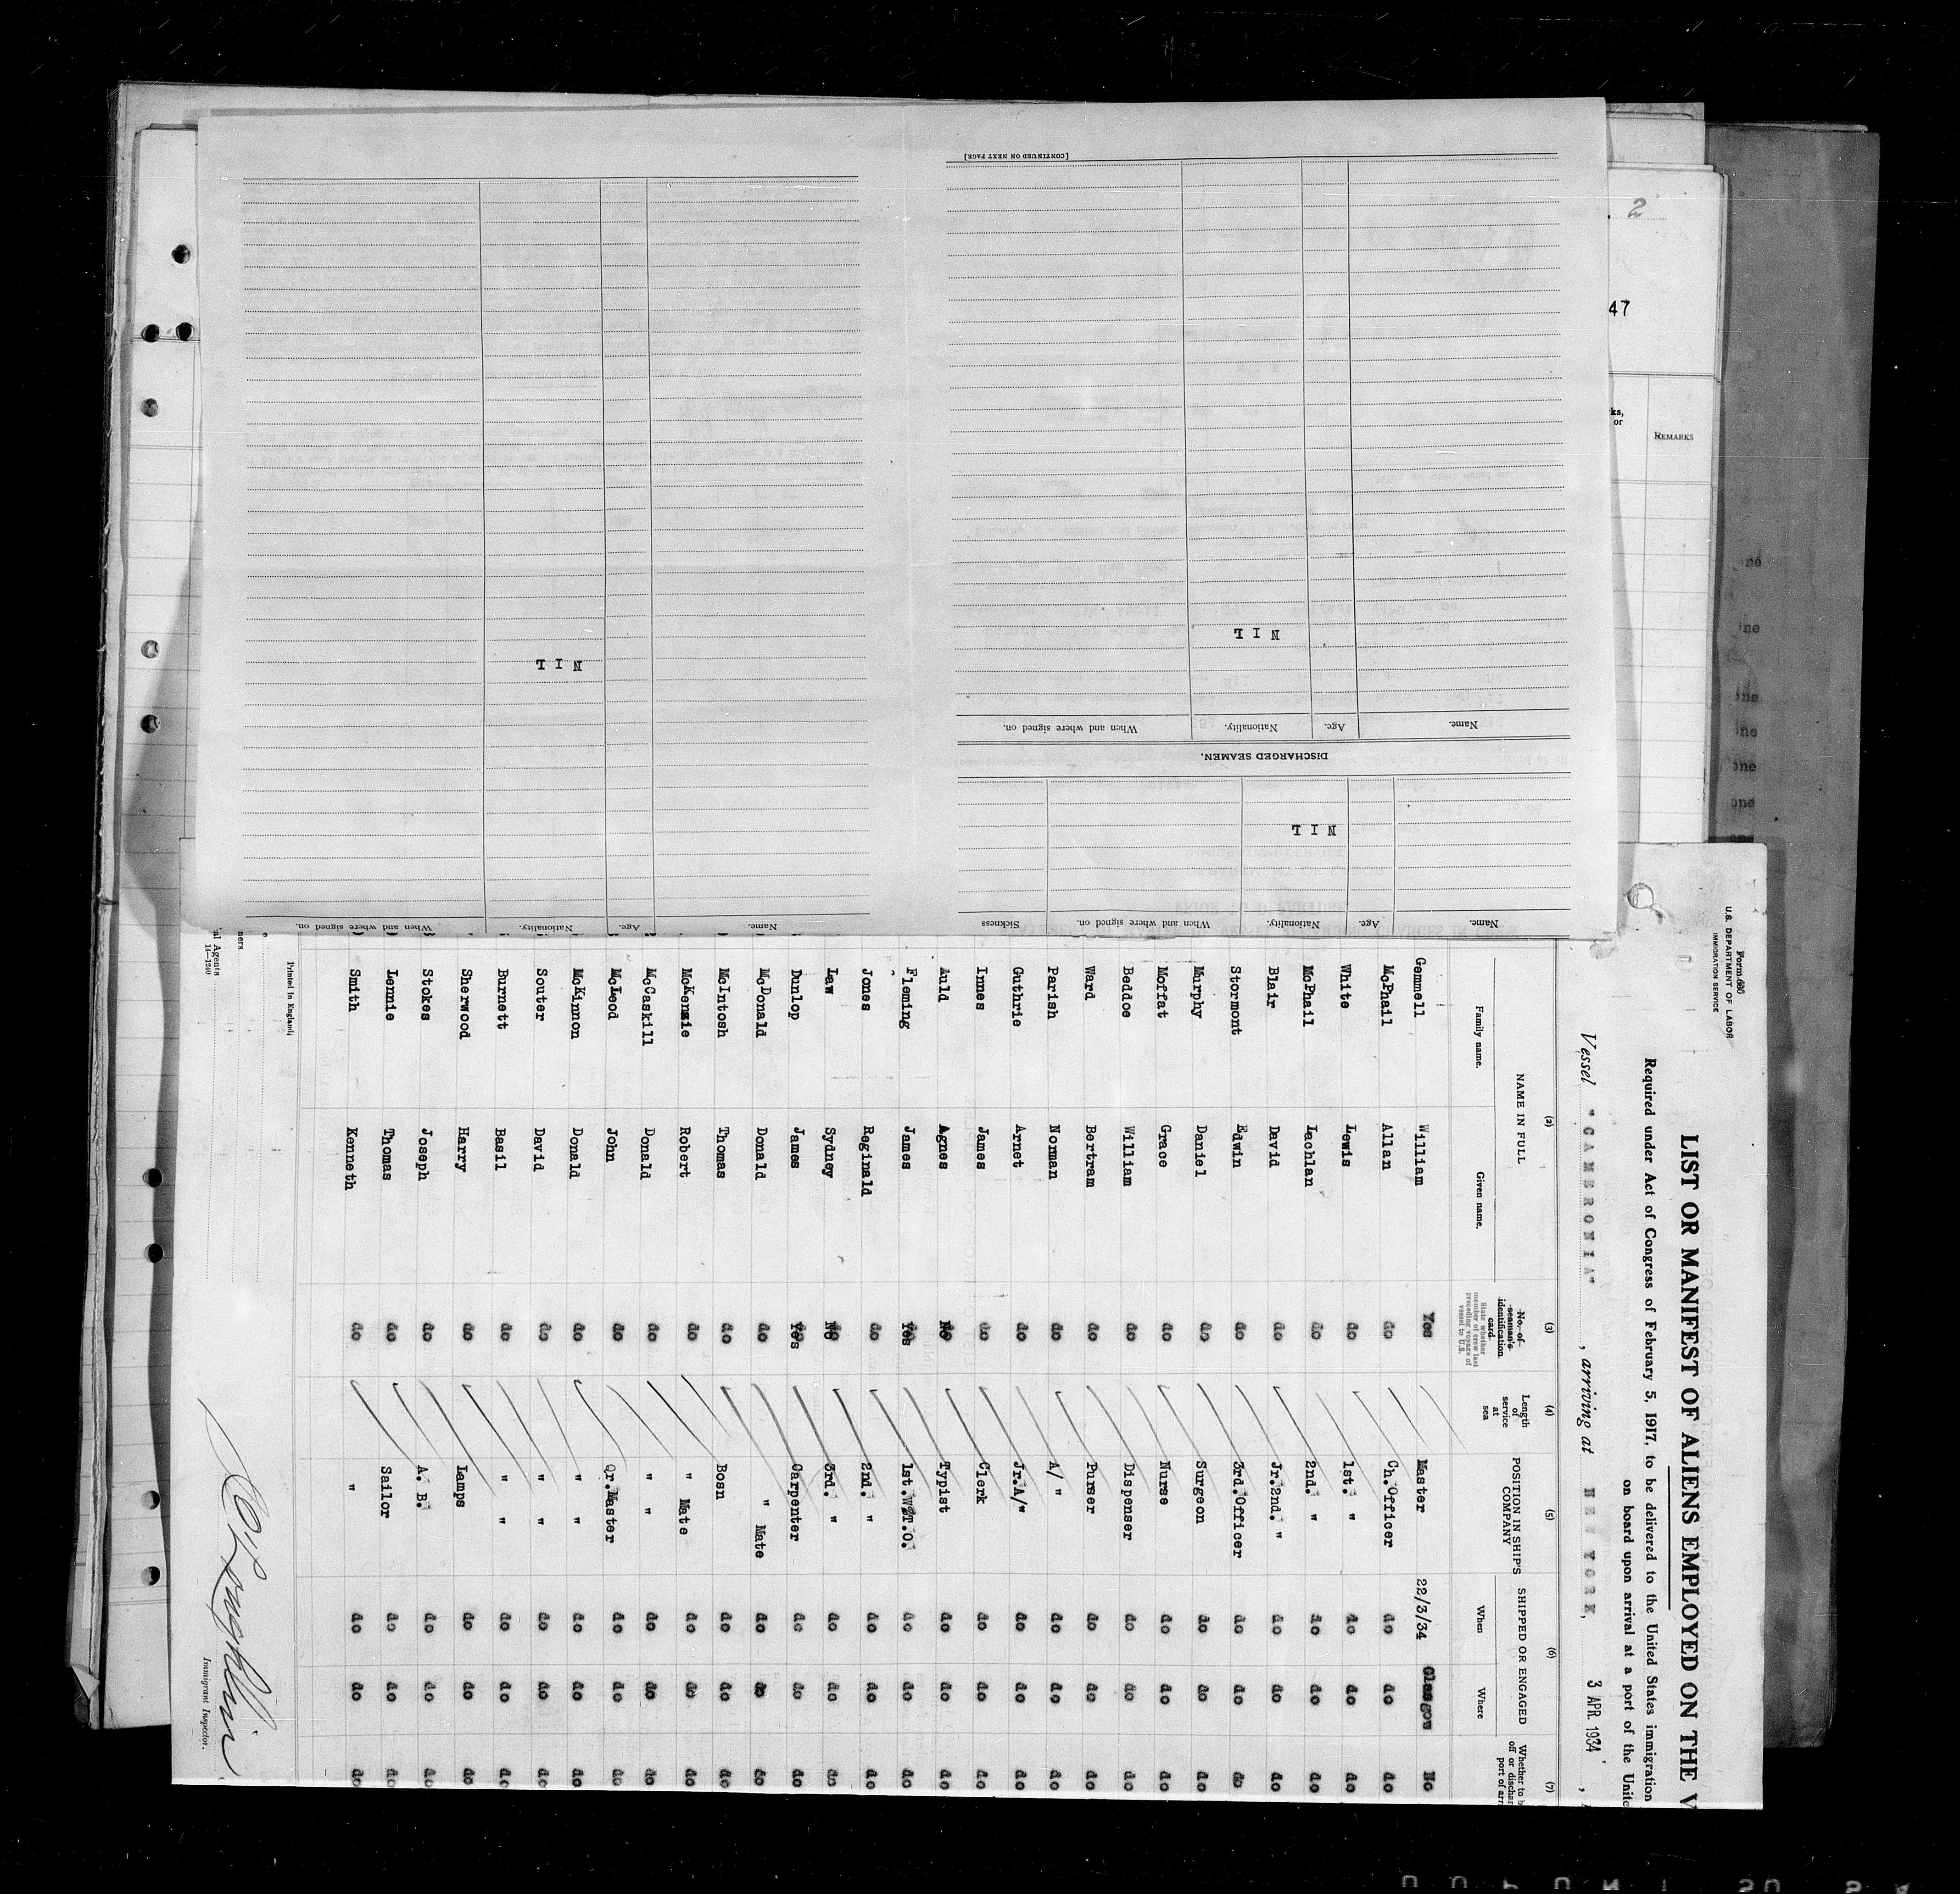 [CONTINUED ON NEXT PAGE]
NIL
Name. Age. Nationality. When and where signed on.
DISCHARGED SEAMEN.
NIL
Name. Age. Nationality. When and where signed on. Sickness
NIL
Name. Age. Nationality. When and where signed on.
2
47
REMARKS
Form 680
U.S. DEPARTMENT OF LABOR
IMMIGRATION SERVICE
LIST OR MANIFEST OF ALIENS EMPLOYED ON THE V
Required under Act of Congress of February 5, 1917, to be delivered to the United States immigration
on board upon arrival at a port of the Unite
Vessel "CAMERONIA", arriving at NEW YORK, 3 APR. 1934,
(2) (3) (4) (5) (6) (7)
NAME IN FULL
Family name. Given name.
No. of seaman's identification card
State whether member of crew last preceding voyage of vessel to U.S.
Length of service at sea
POSITION IN SHIP'S COMPANY
SHIPPED OR ENGAGED
When Where
Whether to b
off or dischar
port of arr
Gemmell William Yes Master 22/3/34 Glasgow No
McPhail Allan do Ch. Officer do do do
White Lewis do 1st. " do do do
McPhail Lachlan do 2nd. " do do do
Blair David do Jr.2nd. " do do do
Stormont Edwin do 3rd.Officer do do do
Murphy Daniel do Surgeon do do do
Moffat Grace do Nurse do do do
Beddoe William do Dispenser do do do
Ward Bertram do Purser do do do
Parish Norman do A/ " do do do
Guthrie Arnet do Jr.A/" do do do
Innes James do Clerk do do do
Auld Agnes No Typist do do do
Fleming James Yes 1st.W/T.O. do do do
Jones Reginald do 2nd. " do do do
Law Sydney No 3rd. " do do do
Dunlop James Yes Carpenter do do do
McDonald Donald do " Mate do do do
McIntosh Thomas do Bosn do do do
McKenzie Robert do " Mate do do do
McCaskill Donald do " " do do do
McLeod John do Qr.Master do do do
McKinnon Donald do " " do do do
Souter David do " " do do do
Burnett Basil do " " do do do
Sherwood Harry do Lamps do do do
Stokes Joseph do A. B. do do do
Lennie Thomas do Sailor do do do
Smith Kenneth do " do do do
Printed in England
ners
al Agents
14-1240
Immigrant Inspector.